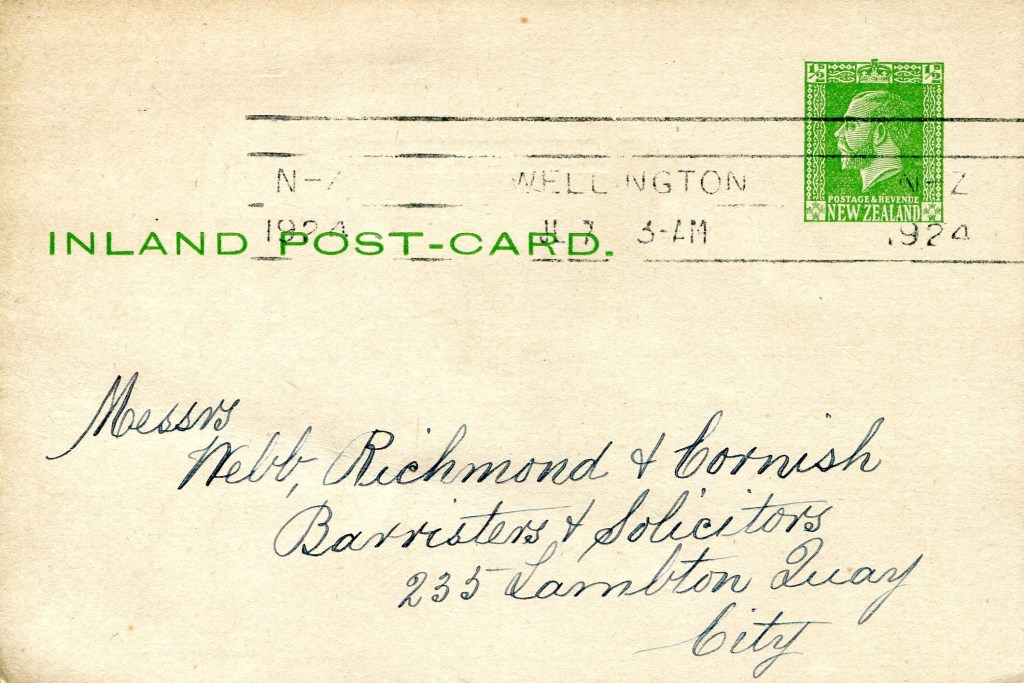 ½ ½
POSTAGE & REVENUE
NEW ZEALAND
N-Z WELLINGTON N-Z
1924 JL 7 3-AM 1924
INLAND POST-CARD.
Messrs
Webb, Richmond & Cornish
Barristers & Solicitors
235 Lambton Quay
City